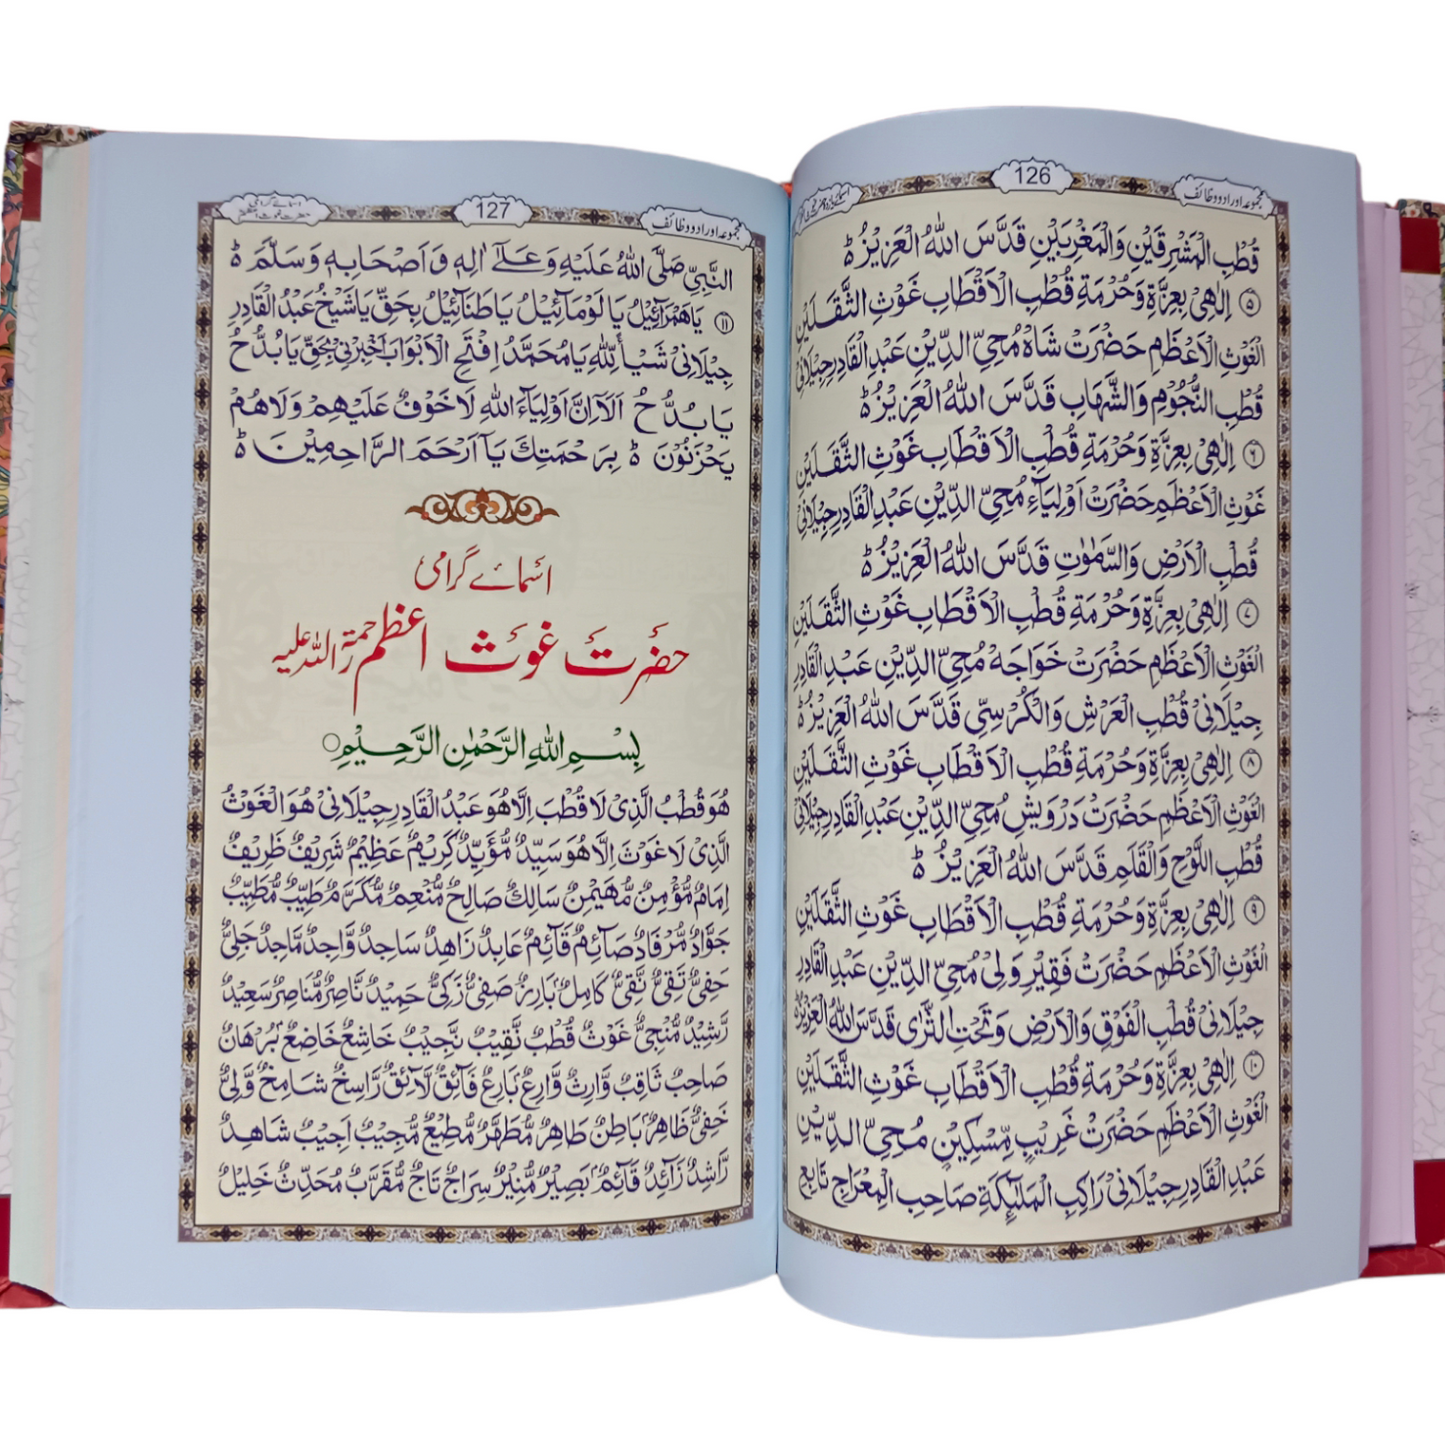 مجموعہ اوراد و وظائف
126
قُطْبِ الْمَشْرِقَيْنِ وَالْمَغْرِبَيْنِ قَدَّسَ اللهُ الْعَزِيْزُ ۃ
۵ اِلٰهِىْ بِعِزَّةِ وَحُرْمَةِ قُطْبِ الْاَقْطَابِ غَوْثِ الثَّقَلَيْنِ
الْغَوْثِ الْاَعْظَمِ حَضْرَتْ شَاهْ مُحِىِّ الدِّيْنِ عَبْدِ الْقَادِرِ جِيْلَانِىْ
قُطْبِ النُّجُوْمِ وَالشَّهَابِ قَدَّسَ اللهُ الْعَزِيْزُ ۃ
۶ اِلٰهِىْ بِعِزَّةِ وَحُرْمَةِ قُطْبِ الْاَقْطَابِ غَوْثِ الثَّقَلَيْنِ
غَوْثِ الْاَعْظَمِ حَضْرَتْ اَوْلِيَآءِ مُحِىِّ الدِّيْنِ عَبْدِ الْقَادِرِ جِيْلَانِىْ
قُطْبِ الْاَرْضِ وَالسَّمٰوٰتِ قَدَّسَ اللهُ الْعَزِيْزُ ۃ
۷ اِلٰهِىْ بِعِزَّةِ وَحُرْمَةِ قُطْبِ الْاَقْطَابِ غَوْثِ الثَّقَلَيْنِ
الْغَوْثِ الْاَعْظَمِ حَضْرَتْ خَوَاجَهْ مُحِىِّ الدِّيْنِ عَبْدِ الْقَادِرِ
جِيْلَانِىْ قُطْبِ الْعَرْشِ وَالْكُرْسِىِّ قَدَّسَ اللهُ الْعَزِيْزُ ۃ
۸ اِلٰهِىْ بِعِزَّةِ وَحُرْمَةِ قُطْبِ الْاَقْطَابِ غَوْثِ الثَّقَلَيْنِ
الْغَوْثِ الْاَعْظَمِ حَضْرَتْ دَرْوَيْشِ مُحِىِّ الدِّيْنِ عَبْدِ الْقَادِرِ جِيْلَانِىْ
قُطْبِ اللَّوْحِ وَالْقَلَمِ قَدَّسَ اللهُ الْعَزِيْزُ ۃ
۹ اِلٰهِىْ بِعِزَّةِ وَحُرْمَةِ قُطْبِ الْاَقْطَابِ غَوْثِ الثَّقَلَيْنِ
الْغَوْثِ الْاَعْظَمِ حَضْرَتْ فَقِيْرِ وَلِىْ مُحِىِّ الدِّيْنِ عَبْدِ الْقَادِرِ
جِيْلَانِىْ قُطْبِ الْفَوْقِ وَالْاَرْضِ وَتَحْتِ الثَّرٰى قَدَّسَ اللهُ الْعَزِيْزُ ۃ
۱۰ اِلٰهِىْ بِعِزَّةِ وَحُرْمَةِ قُطْبِ الْاَقْطَابِ غَوْثِ الثَّقَلَيْنِ
الْغَوْثِ الْاَعْظَمِ حَضْرَتْ غَرِيْبٍ مِّسْكِيْنٍ مُحِىِّ الدِّيْنِ
عَبْدِ الْقَادِرِ جِيْلَانِىْ رَاكِبِ الْمَلٰٓئِكَةِ صَاحِبِ الْمِعْرَاجِ تَابِعِ
مجموعہ اوراد و وظائف
127
اسمائے گرامی
حضرت غوث اعظم
النَّبِىِّ صَلَّى اللهُ عَلَيْهِ وَعَلٰٓى اٰلِهٖ وَاَصْحَابِهٖ وَسَلَّمَ ۃ
۱۱ يَاهَمْرَآئِيْلُ يَا لَوْمَآئِيْلُ يَاطَنَآئِيْلُ بِحَقِّ يَاشَيْخْ عَبْدُ الْقَادِرِ
جِيْلَانِىْ شَيْأً لِلّٰهِ يَامُحَمَّدُ اِفْتَحِ الْاَبْوَابَ اَخْبِرْنِىْ بِحَقِّ يَابُدُّحُ
يَابُدُّحُ اَلَآ اِنَّ اَوْلِيَآءَ اللهِ لَا خَوْفٌ عَلَيْهِمْ وَلَاهُمْ
يَحْزَنُوْنَ ۃ بِرَحْمَتِكَ يَآ اَرْحَمَ الرَّاحِمِيْنَ ۃ
اسمائے گرامی
حضرت غوث اعظم رحمۃ اللہ علیہ
بِسْمِ اللهِ الرَّحْمٰنِ الرَّحِيْمِ ○
هُوَ قُطْبُ الَّذِىْ لَا قُطْبَ اِلَّا هُوَ عَبْدُ الْقَادِرِ جِيْلَانِىْ هُوَ الْغَوْثُ
الَّذِىْ لَا غَوْثَ اِلَّا هُوَ سَيِّدٌ مُّؤَيِّدٌ كَرِيْمٌ عَظِيْمٌ شَرِيْفٌ ظَرِيْفٌ
اِمَامٌ مُّؤْمِنٌ مُّهَيْمِنٌ سَالِكٌ صَالِحٌ مُّنْعِمٌ مُّكَرَّمٌ طَيِّبٌ مُّطَيِّبٌ
جَوَّادٌ مُّرْفَادٌ صَآئِمٌ قَآئِمٌ عَابِدٌ زَاهِدٌ سَاجِدٌ وَّاجِدٌ مَّاجِدٌ جَلِىٌّ
حَفِىٌّ تَقِىٌّ نَّقِىٌّ كَامِلٌ بَارِزٌ صَفِىٌّ زَكِىٌّ حَمِيْدٌ نَّاصِرٌ مُّنَاصِرٌ سَعِيْدٌ
رَّشِيْدٌ مُّنْجِىٌّ غَوْثٌ قُطْبٌ نَّقِيْبٌ نَّجِيْبٌ خَاشِعٌ خَاضِعٌ بُرْهَانٌ
صَاحِبٌ ثَاقِبٌ وَّارِثٌ وَّارِعٌ بَارِعٌ فَآئِقٌ لَّآئِقٌ رَّاسِخٌ شَامِخٌ وَّلِىٌّ
خَفِىٌّ ظَاهِرٌ بَاطِنٌ طَاهِرٌ مُّطَهَّرٌ مُّطِيْعٌ مُّجِيْبٌ اَجِيْبٌ شَاهِدٌ
رَّاشِدٌ زَآئِدٌ قَآئِمٌ بَصِيْرٌ مُّنِيْرٌ سِرَاجٌ تَاجٌ مُّقَرَّبٌ مُّحَدِّثٌ خَلِيْلٌ